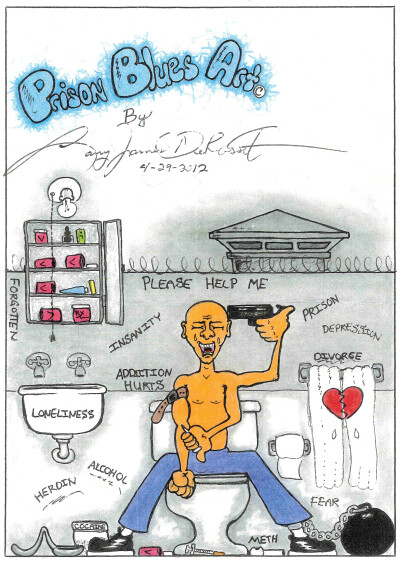 Prison Blues Art.
By
4-29-2012
FORGOTTEN
PLEASE HELP ME
INSANITY
PRISON
DEPRESSION
DIVORCE
ADDITION
HURTS
LONELINESS
HEROIN
ALCOHOL
FEAR
COCAINE
METH